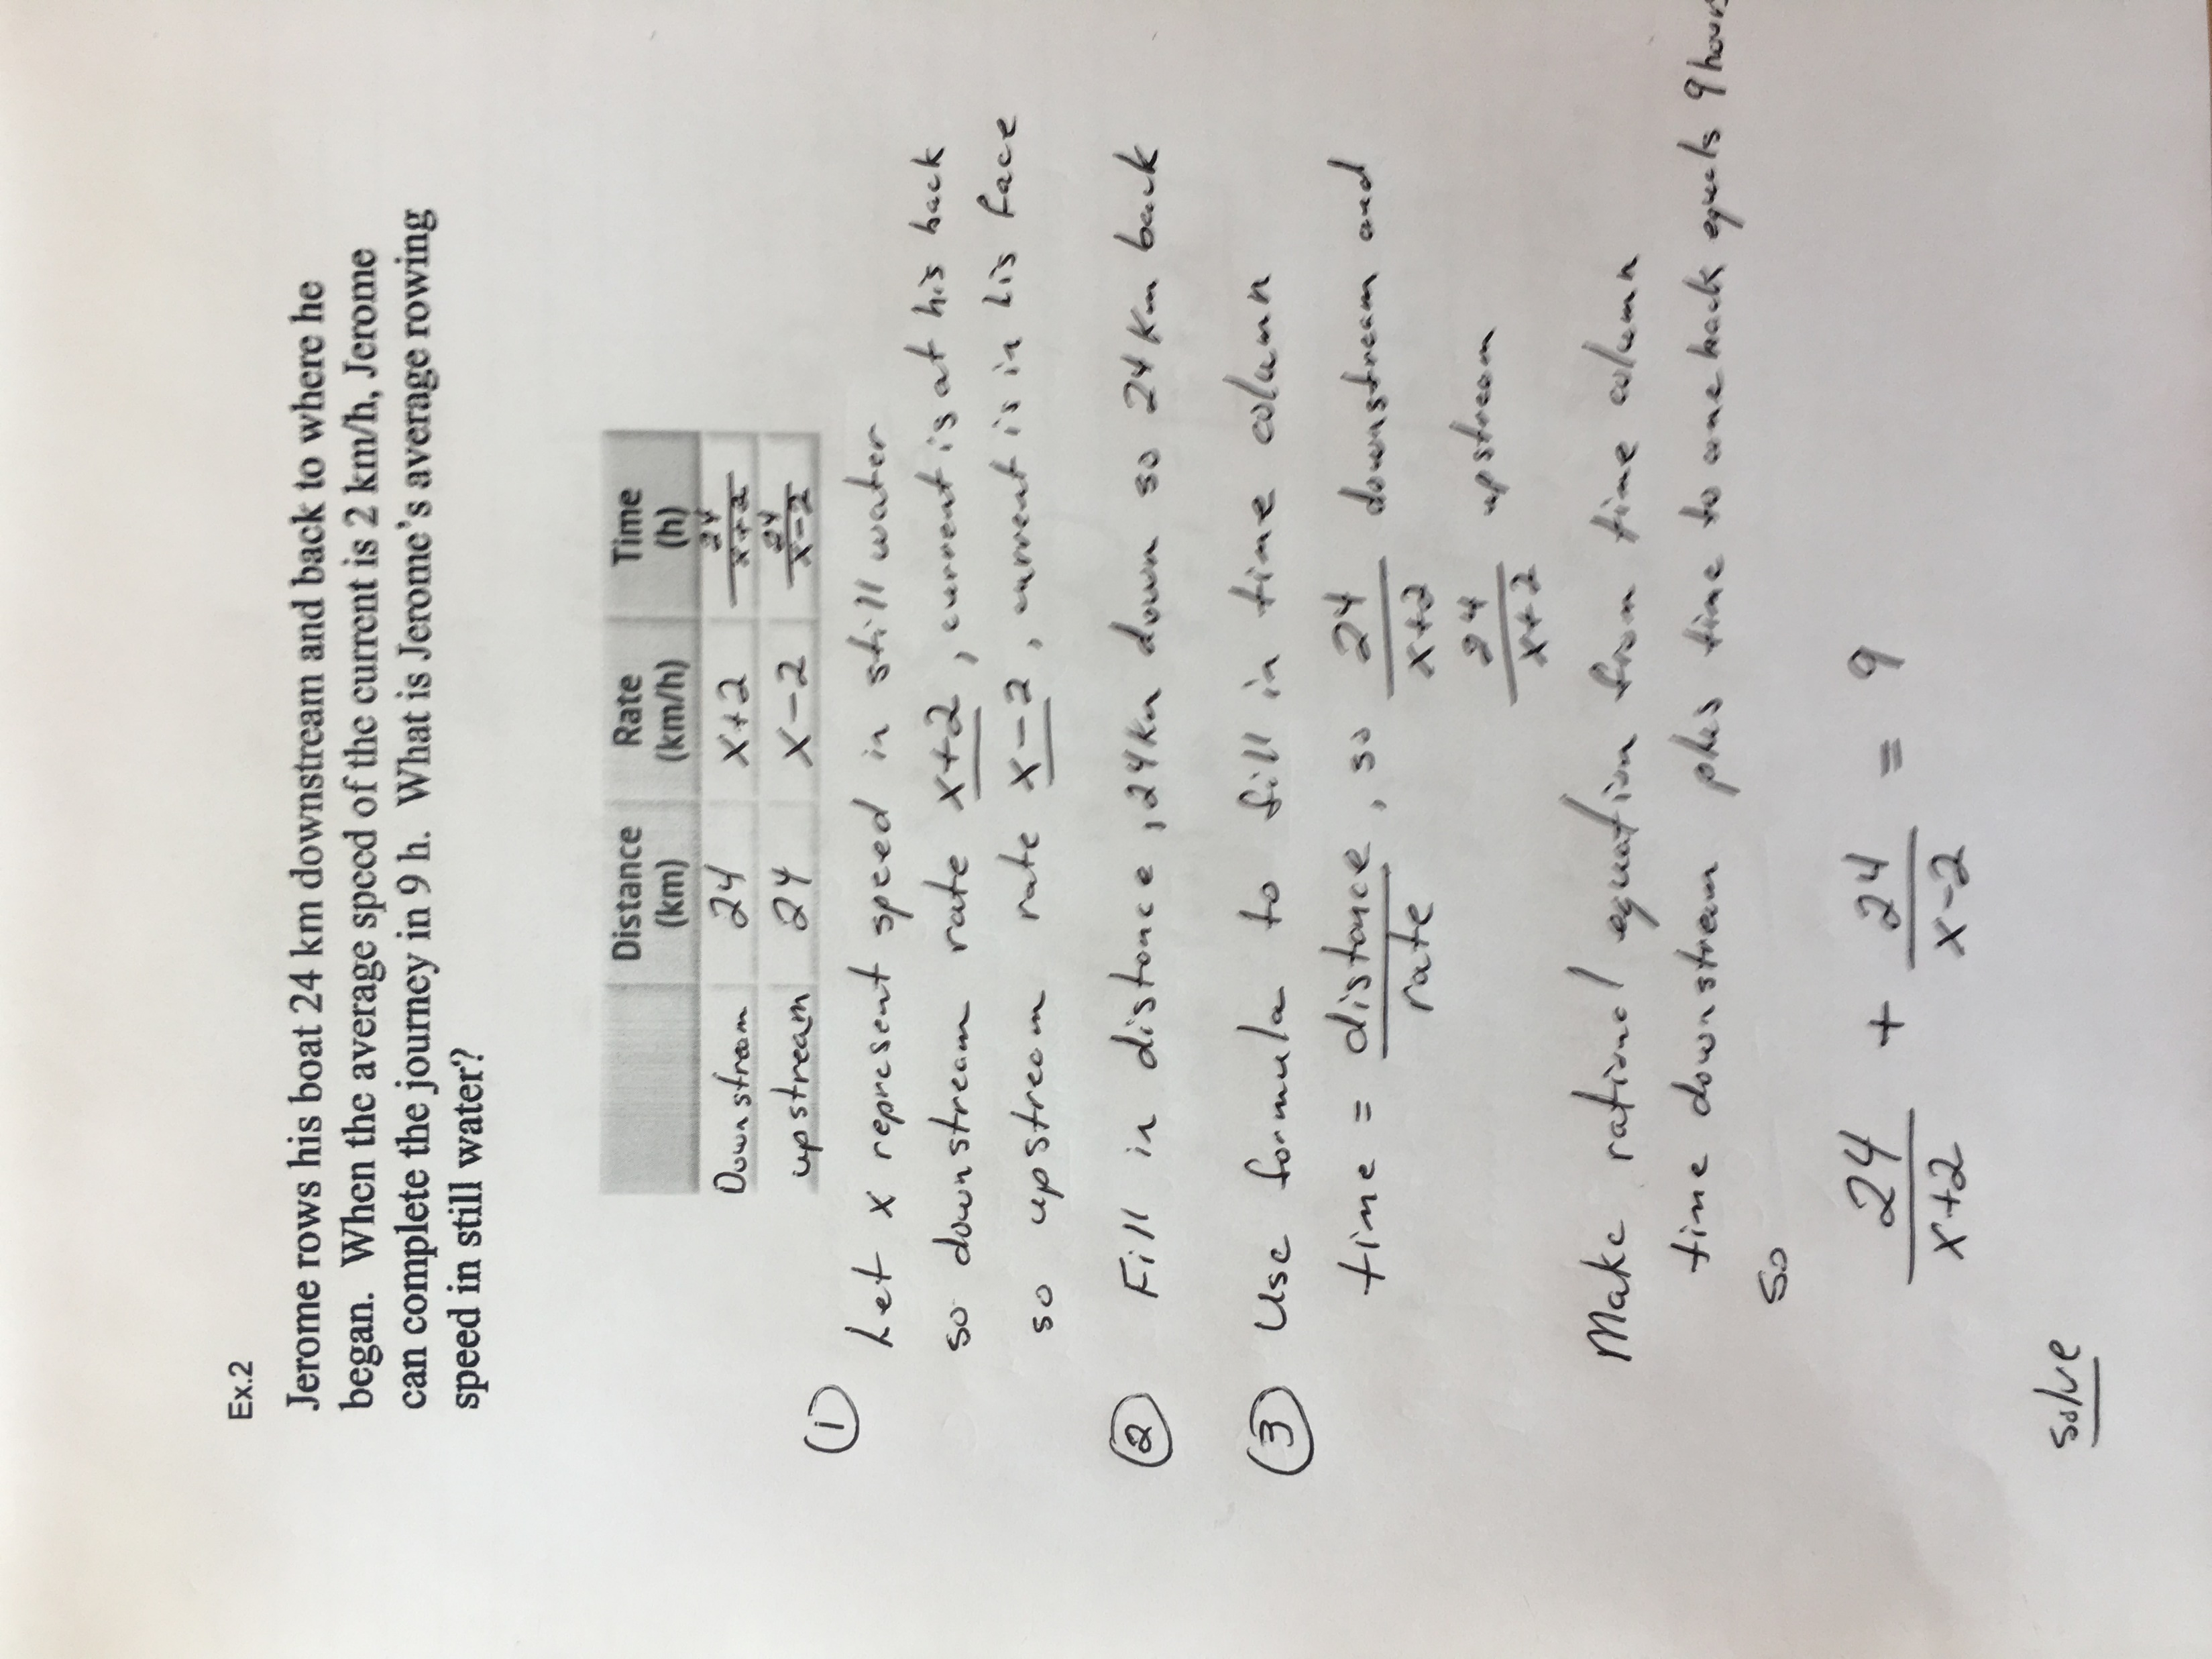 Ex.2
Jerome rows his boat 24 km downstream and back to where he
began. When the average speed of the current is 2 km/h, Jerome
can complete the journey in 9 h. What is Jerome's average rowing
speed in still water?
Distance (km) Rate (km/h) Time (h)
Downstream 24 x+2 24/x+2
upstream 24 x-2 24/x-2
① Let x represent speed in still water
so downstream rate x+2, current is at his back
so upstream rate x-2, current is in his face
② Fill in distance, 24km down so 24km back
③ Use formula to fill in time column
time = distance/rate, so 24/x+2 downstream and
24/x+2 upstream
Make rational equation from time column
time downstream plus time to come back equals 9 hours
so
24/x+2 + 24/x-2 = 9
solve